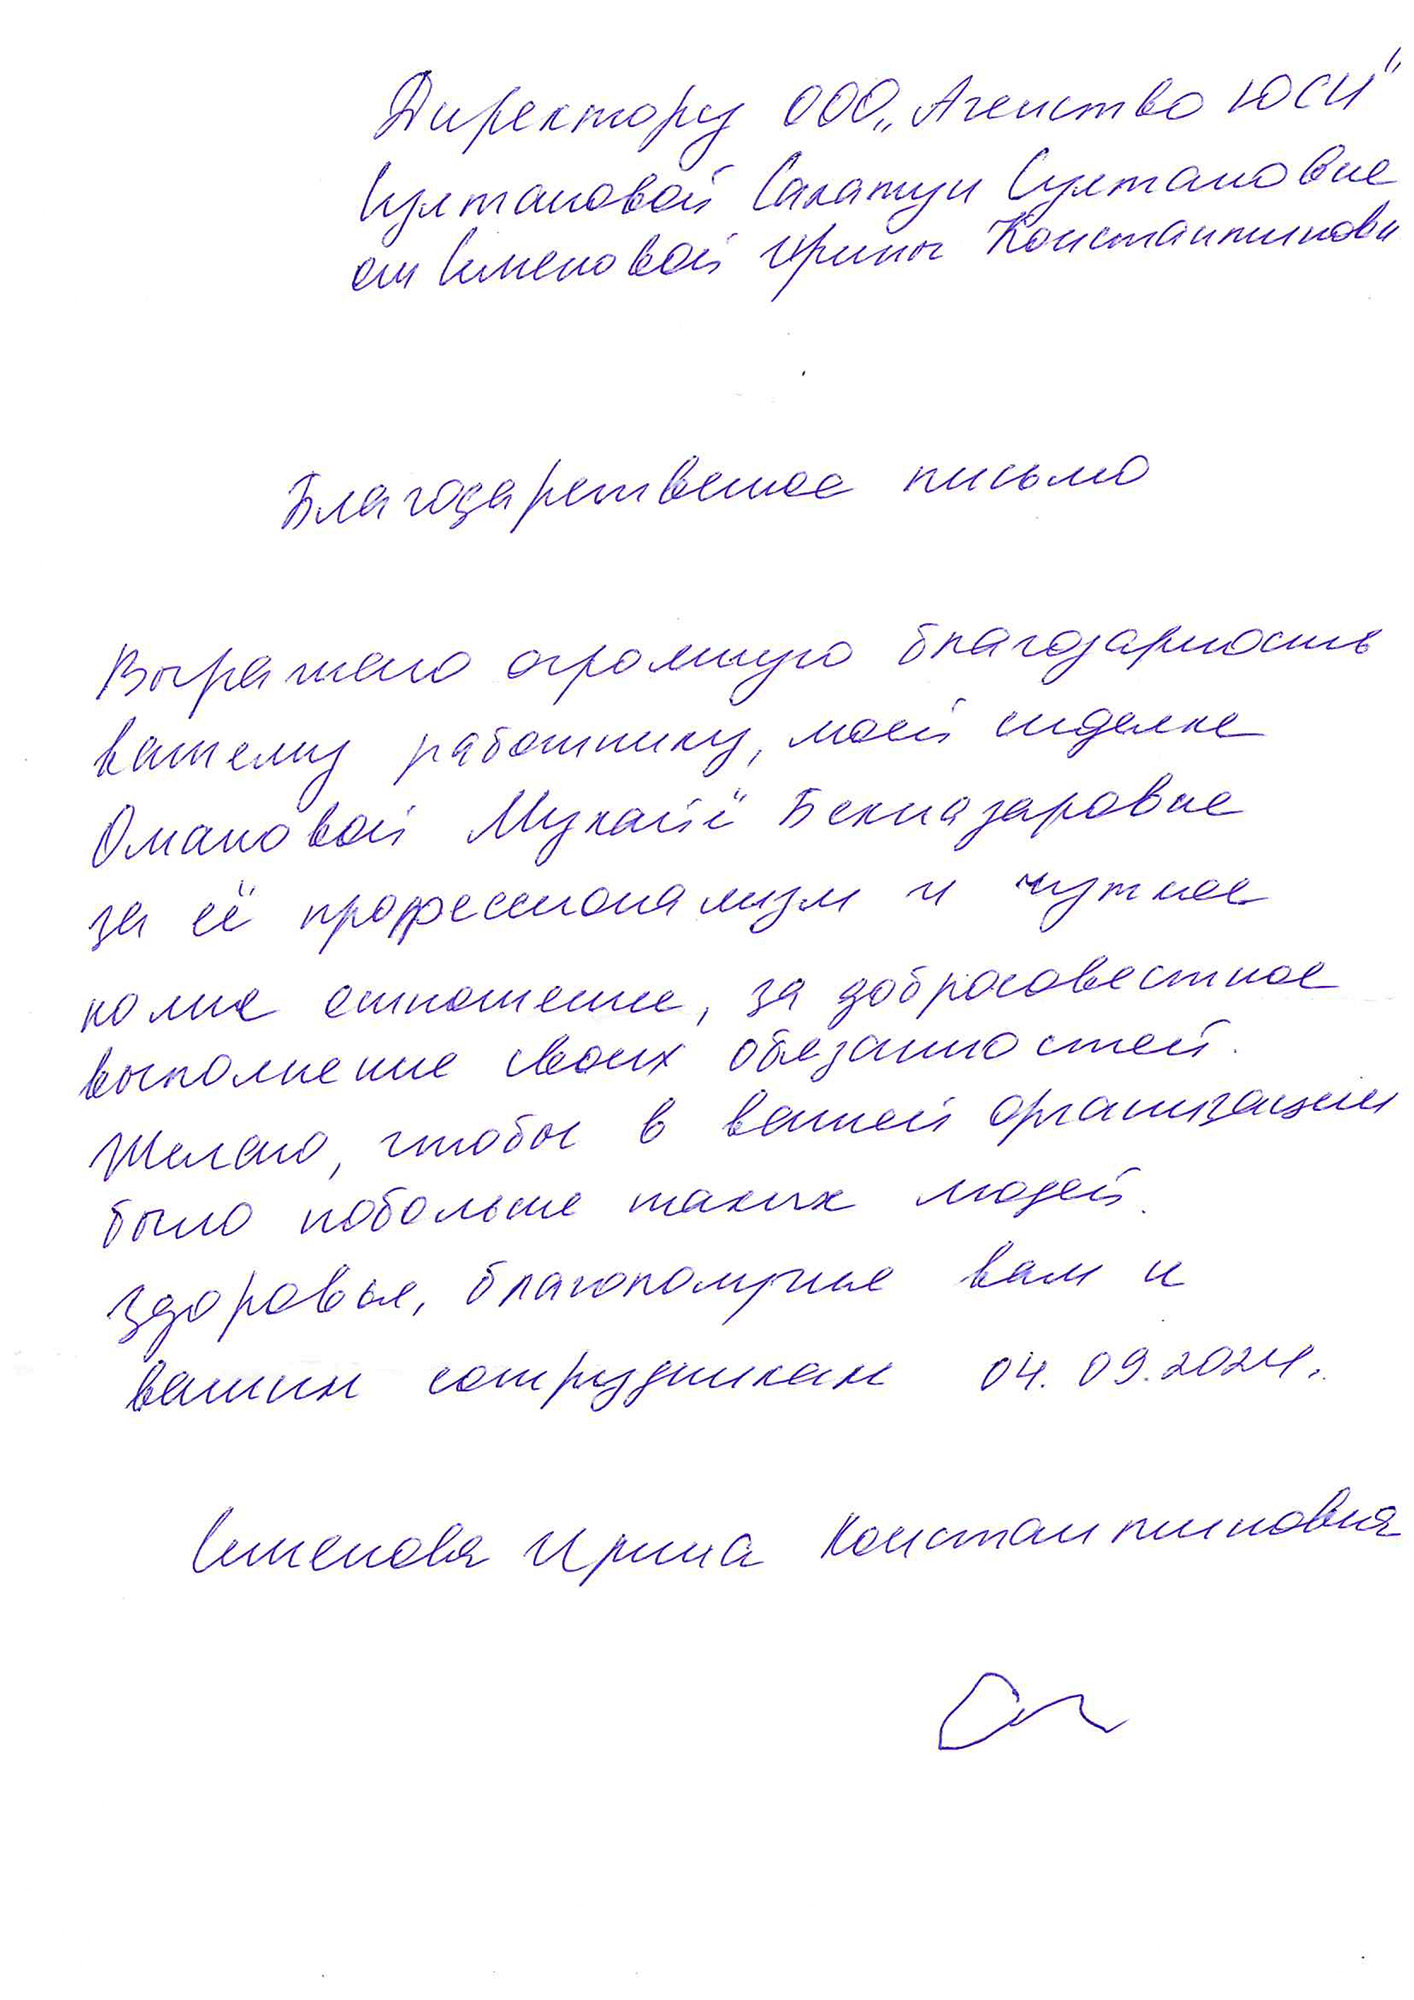 Директору ООО „Агенство ЮСИ"
Султановой Салатун Султановне
от Семеновой Ирины Константиновн
Благодарственное письмо
Выражаю огромную благодарность
вашему работнику, моей сиделке
Омановой Бекназаровне
за её профессионализм и чуткое
ко мне отношение, за добросовестное
выполнение своих обязанностей.
Желаю, чтобы в вашей организации
было побольше таких людей.
Здоровья, благополучие вам и
вашим сотрудникам 04.09.2024г.
Семенова Ирина Константиновна